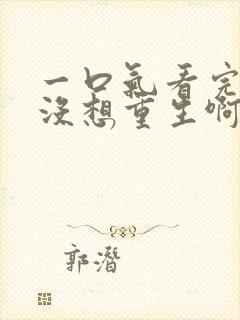 一口氣看完
沒想重生啊
郭潛